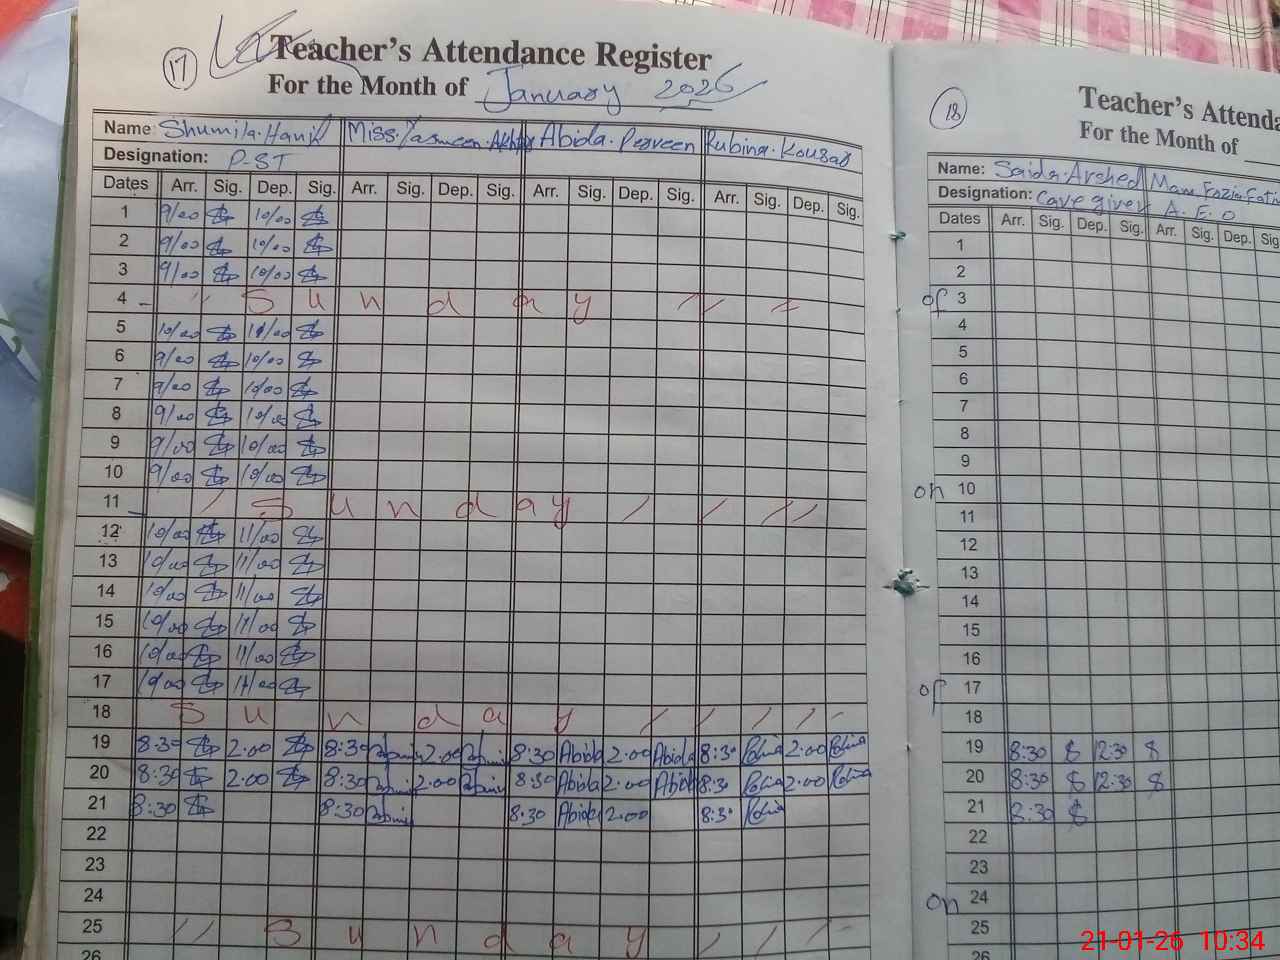 17 Teacher's Attendance Register
For the Month of January 2026
Name: Shumila Hanif Miss. Yasmeen. Akhtar Abida. Perveen Rubina. Kousar
Designation: P-ST
Dates Arr. Sig. Dep. Sig. Arr. Sig. Dep. Sig. Arr. Sig. Dep. Sig. Arr. Sig. Dep. Sig.
1 9/00 10/00
2 9/00 10/00
3 9/00 10/00
4 Sunday
5 10/00 11/00
6 9/00 10/00
7 9/00 10/00
8 9/00 10/00
9 9/00 10/00
10 9/00 10/00
11 Sunday
12 10/00 11/00
13 10/00 11/00
14 10/00 11/00
15 10/00 11/00
16 10/00 11/00
17 10/00 11/00
18 Sunday
19 8:30 2.00 8:30 2.00 8:30 Abida 2.00 Abida 8:30 2.00
20 8:30 2.00 8:30 2.00 8:30 Abida 2.00 Abida 8:30 2.00
21 8:30 8:30 8:30 Abida 2.00 8:30
22
23
24
25 Sunday
26
18 Teacher's Attenda
For the Month of
Name: Saida. Arshed Mam Fozia Fatm
Designation: Care giver A. E. O
Dates Arr. Sig. Dep. Sig. Arr. Sig. Dep. Sig
1
2
of 3
4
5
6
7
8
9
on 10
11
12
13
14
15
16
of 17
18
19 8:30 12:30
20 8:30 12:30
21 8:30
22
23
on 24
25
26
21-01-26 10:34